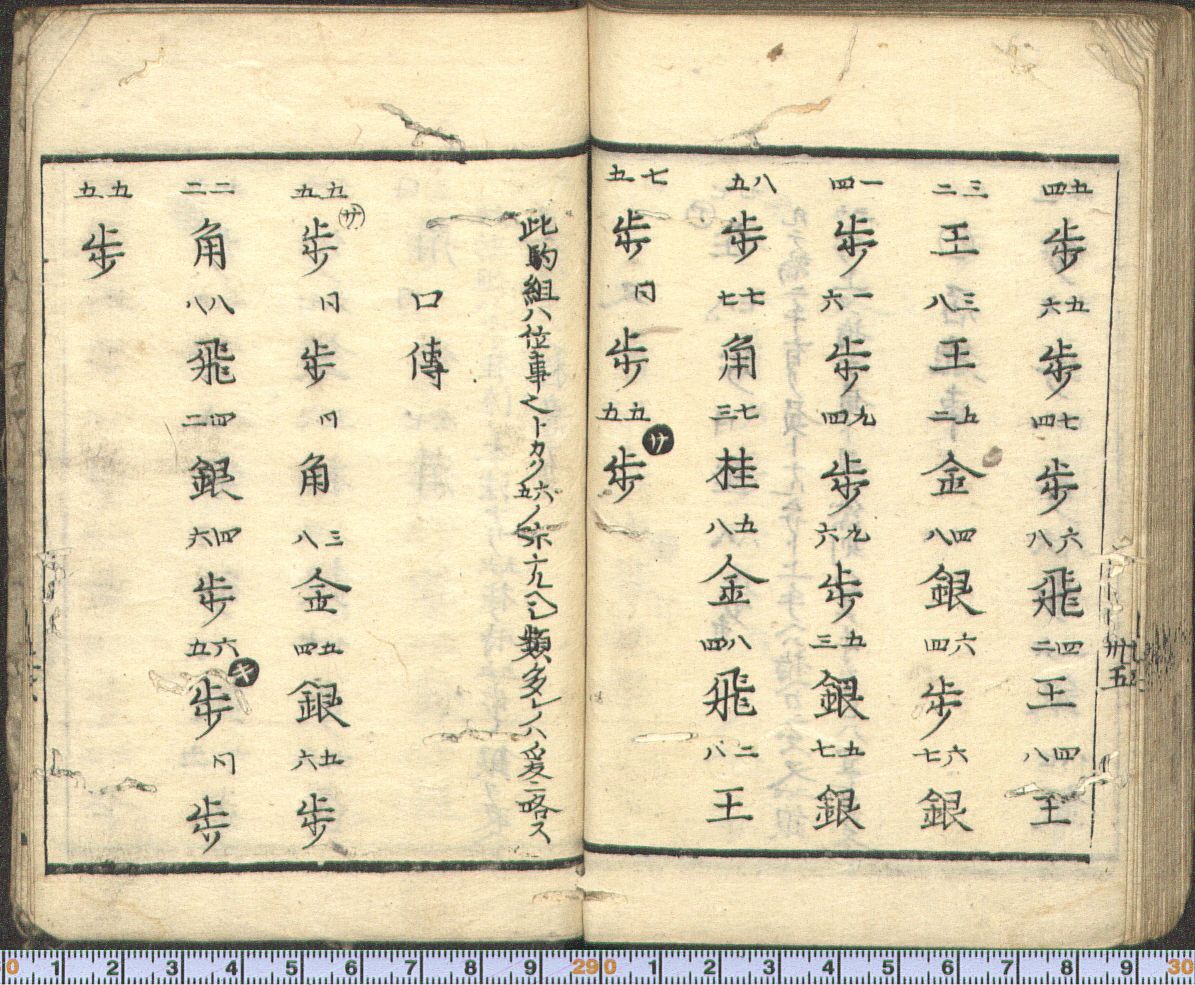 五四 歩 五六 歩 七四 歩 六八 飛 四二 王 四八 王
三二 王 三八 王 五二 金 四八 銀 六四 歩 六七 銀
一四 歩 一六 歩 九四 歩 九六 歩 五三 銀 五七 銀
八五 歩 七七 角 七三 桂 五八 金 八四 飛 二八 王
七五 歩 同 歩 五五 歩 サ
此駒組ハ位事之
類多シ
爰ニ略ス
口傳
五五 歩 サ 同 歩 同 角 三八 金 五四 銀 五六 歩
二二 角 八八 飛 四二 銀 四六 歩 六五 歩 キ 同 歩
九五 歩
卅五
0 1 2 3 4 5 6 7 8 9 29 0 1 2 3 4 5 6 7 8 9 30